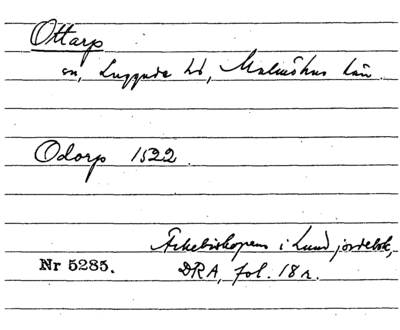 Ottarp
sn, Luggude hd, Malmöhus län.
Odorp 1522
Ärkebiskopens i Lund jordebok,
Nr 5285. DRA, fol. 18 r.